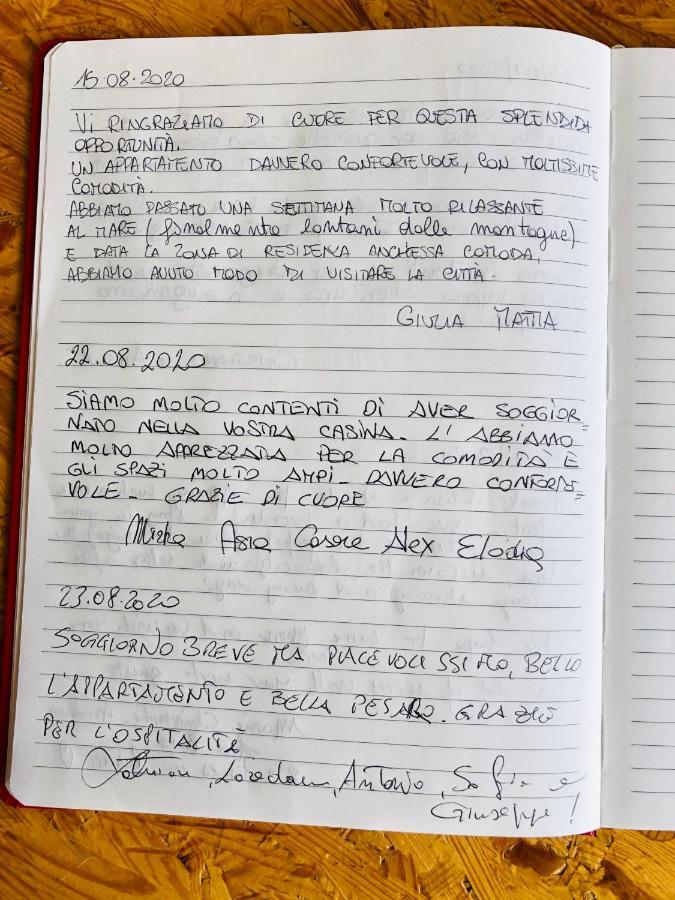 15.08.2020
VI RINGRAZIAMO DI CUORE PER QUESTA SPLENDIDA
OPPORTUNITÀ.
UN APPARTAMENTO DAVVERO CONFORTEVOLE, CON MOLTISSIME
COMODITÀ.
ABBIAMO PASSATO UNA SETTIMANA MOLTO RILASSANTE
AL MARE (finalmente lontani dalle montagne)
E DATA LA ZONA DI RESIDENZA ANCHESSA COMODA,
ABBIAMO AVUTO MODO DI VISITARE LA CITTÀ.
GIULIA MATTIA
22.08.2020
SIAMO MOLTO CONTENTI DI AVER SOGGIOR=
NATO NELLA VOSTRA CASINA. L'ABBIAMO
MOLTO APPREZZATA PER LA COMODITÀ E
GLI SPAZI MOLTO AMPI. DAVVERO CONFORTE=
VOLE. GRAZIE DI CUORE
Asia Alex Elodia
23.08.2020
SOGGIORNO BREVE MA PIACEVOLISSIMO, BELLO
L'APPARTAMENTO E BELLA PESARO. GRAZIE
PER L'OSPITALITÀ
Loredana, Antonio, Sofia e
Giuseppe!